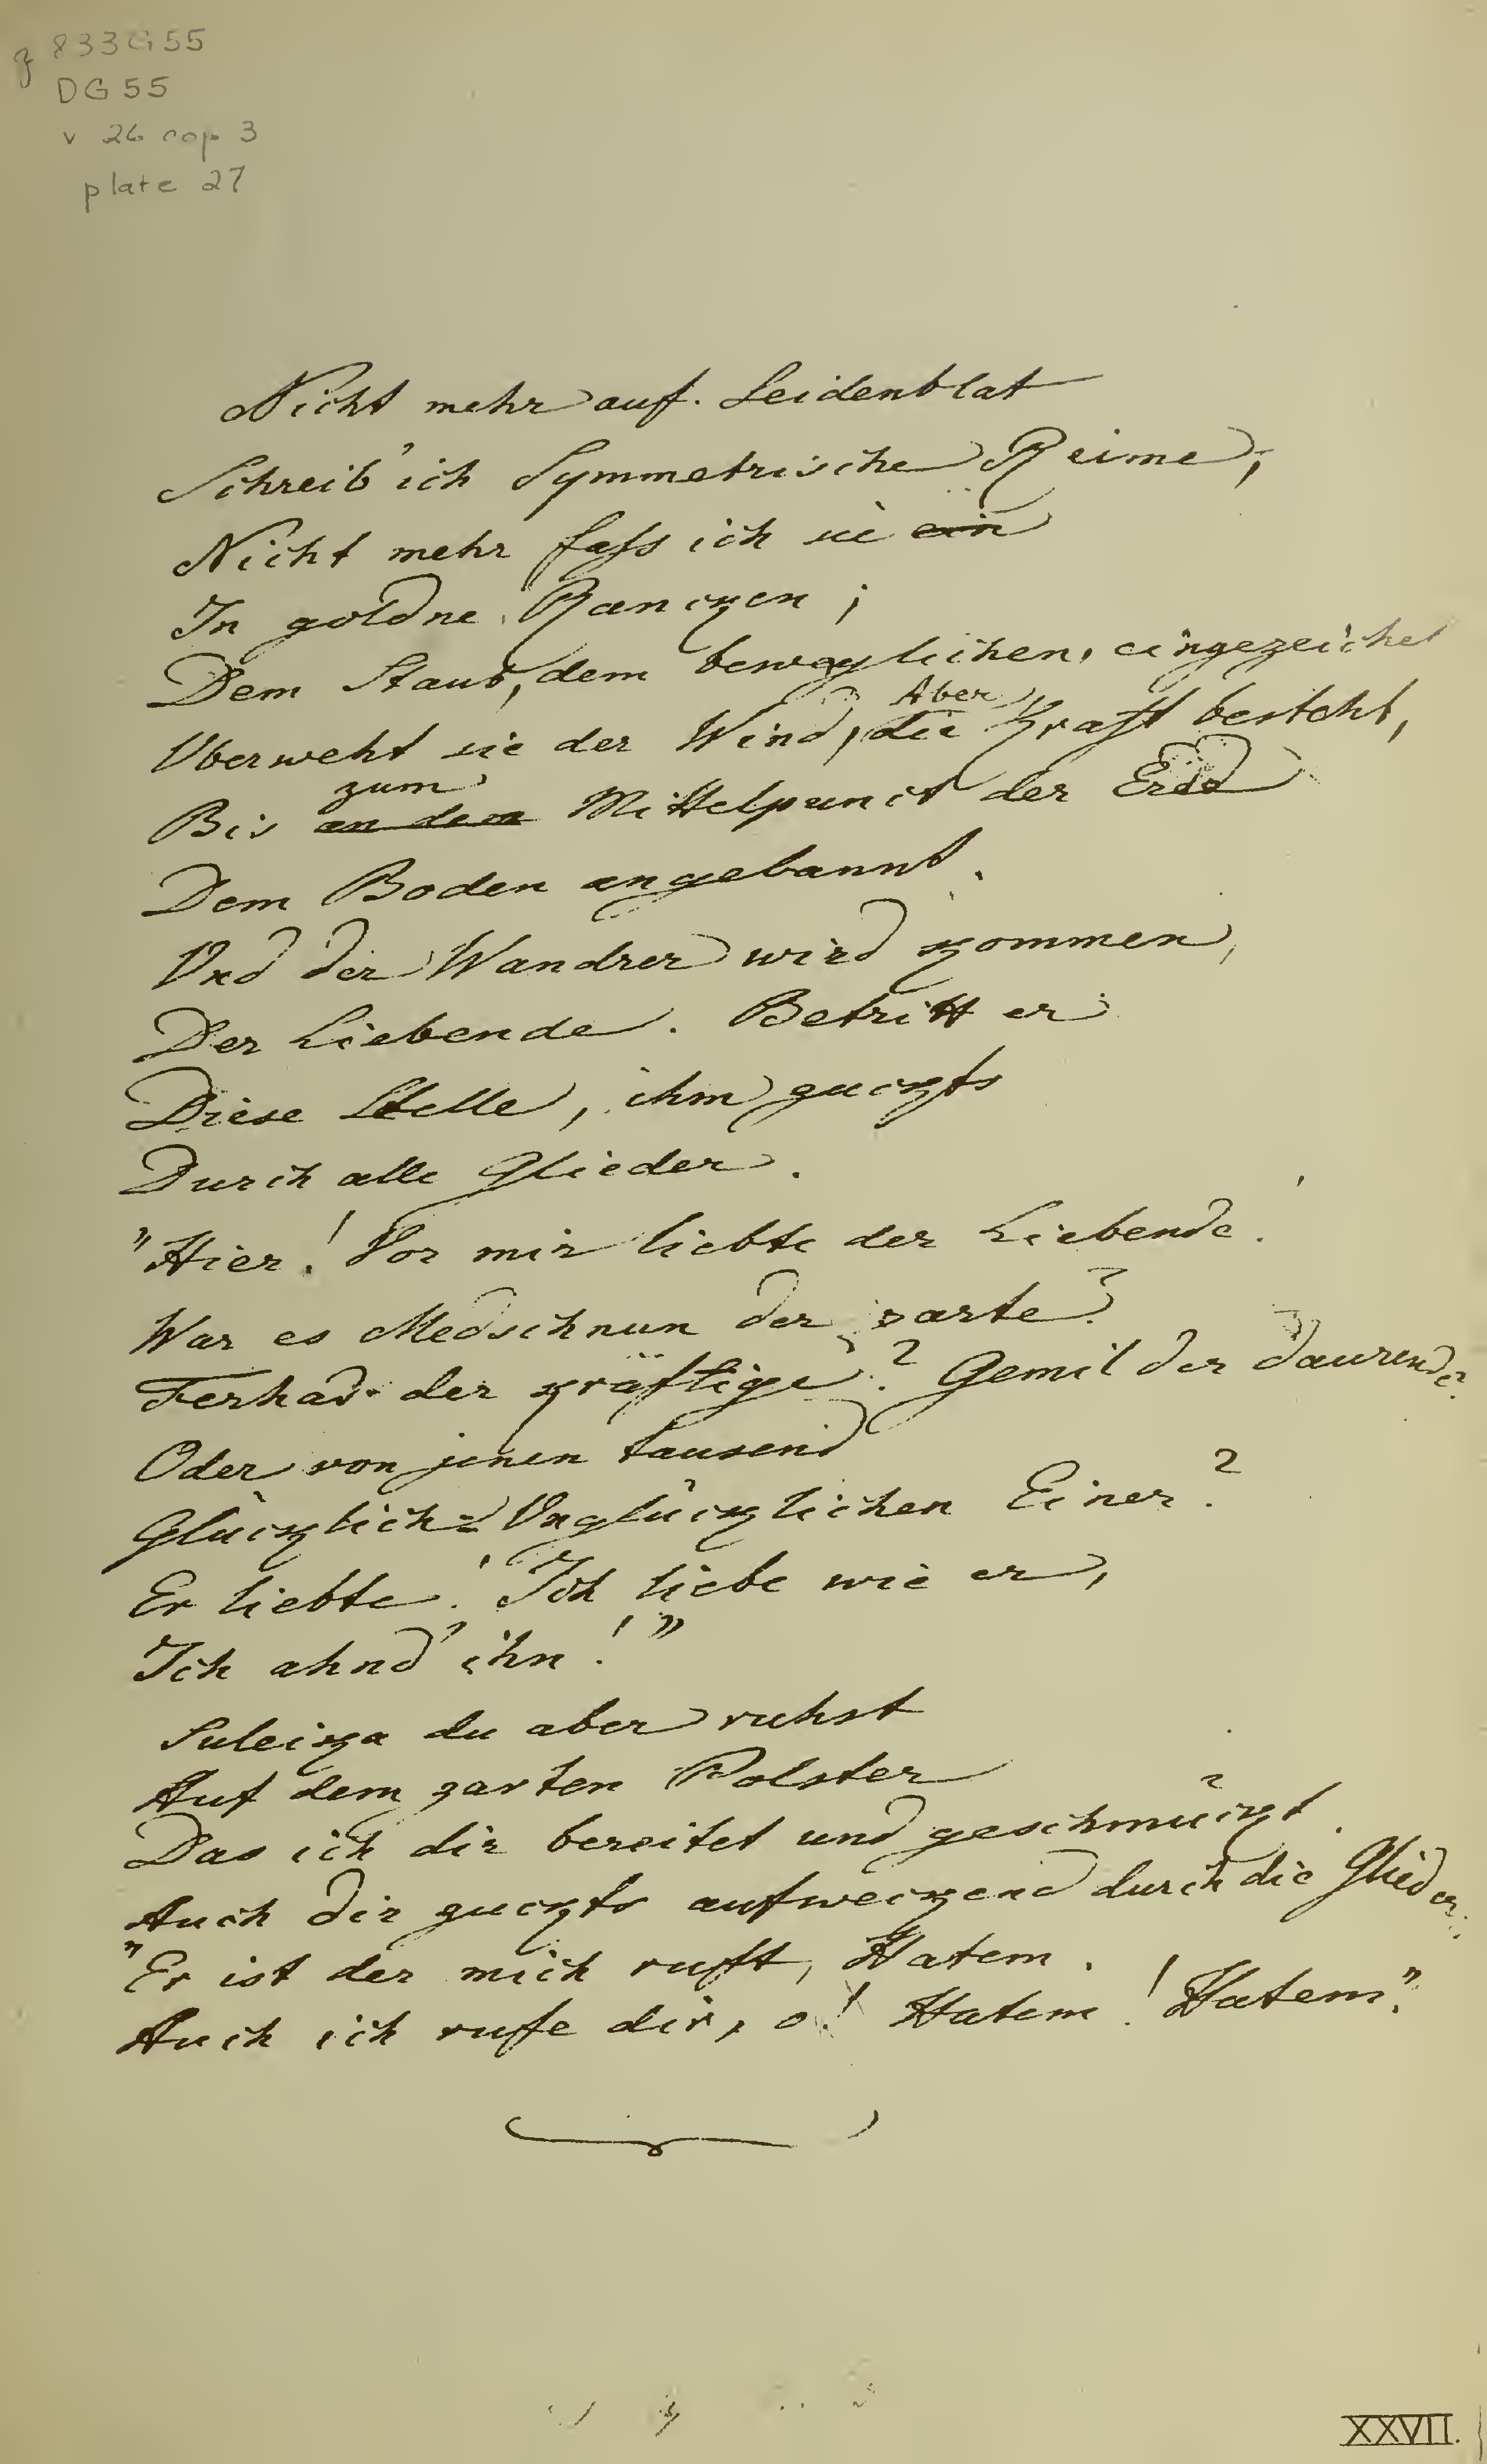 q 833G55
DG55
v 26 cop 3
plate 27
Nicht mehr auf Seidenblat
Schreib' ich Symmetrische Reime,
Nicht mehr fass ich sie ein
In goldne Rancken;
Dem Staub, dem beweglichen, eingezeichet
Uberweht sie der Wind, Aber die Kraft besteht,
Bis an dem zum Mittelpunct der Erde
Dem Boden angebannt.
Und der Wandrer wird kommen,
Der Liebende. Betritt er
Diese Stelle, ihm zuckts
Durch alle Glieder.
"Hier! Vor mir liebte der Liebende!
War es Medschnun der zarte?
Ferhad der kräftige? Gemil der daurende?
Oder von jenen tausend
Glücklich=Unglücklichen Einer?
Er liebte! Ich liebe wie er,
Ich ahnd' ihn!"
Suleika du aber ruhst
Auf dem zarten Polster
Das ich dir bereitet und geschmückt.
Auch dir zuckts aufweckend durch die Glieder.
"Er ist der mich rufft, Hatem.
Auch ich rufe dir, o! Hatem! Hatem."
XXVII.